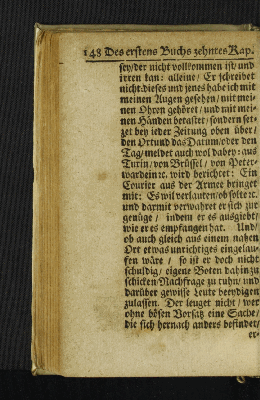 148 Des erstens Buchs zehntes Kap.
sey/der nicht vollkommen ist/ und
irren kan: alleine/ Er schreibet
nicht: dieses und jenes habe ich mit
meinen Augen gesehen/ mit mei-
nen Ohren gehöret/ und mit mei-
nen Händen betastet/ sondern set-
zet bey jeder Zeitung oben über/
den Ort und das Datum/oder den
Tag/ meldet auch wol dabey: aus
Turin/ von Brüssel/ von Peter-
wardein ꝛc. wird berichtet: Ein
Courier aus der Armee bringet
mit: Es wil verlauten/ob solte ꝛc.
und darmit verwahret er sich zur
genüge/ indem er es ausgiebt/
wie er es empfangen hat. Und/
ob auch gleich aus einem nahen
Ort etwas unrichtiges eingelau-
fen wäre/ so ist er doch nicht
schuldig/ eigene Boten dahin zu
schicken/Nachfrage zu tuhn/ und
darüber gewisse Leute beeydigen
zulassen. Der leuget nicht/ wer
ohne bösen Vorsatz eine Sache/
die sich hernach anders befindet/
er-